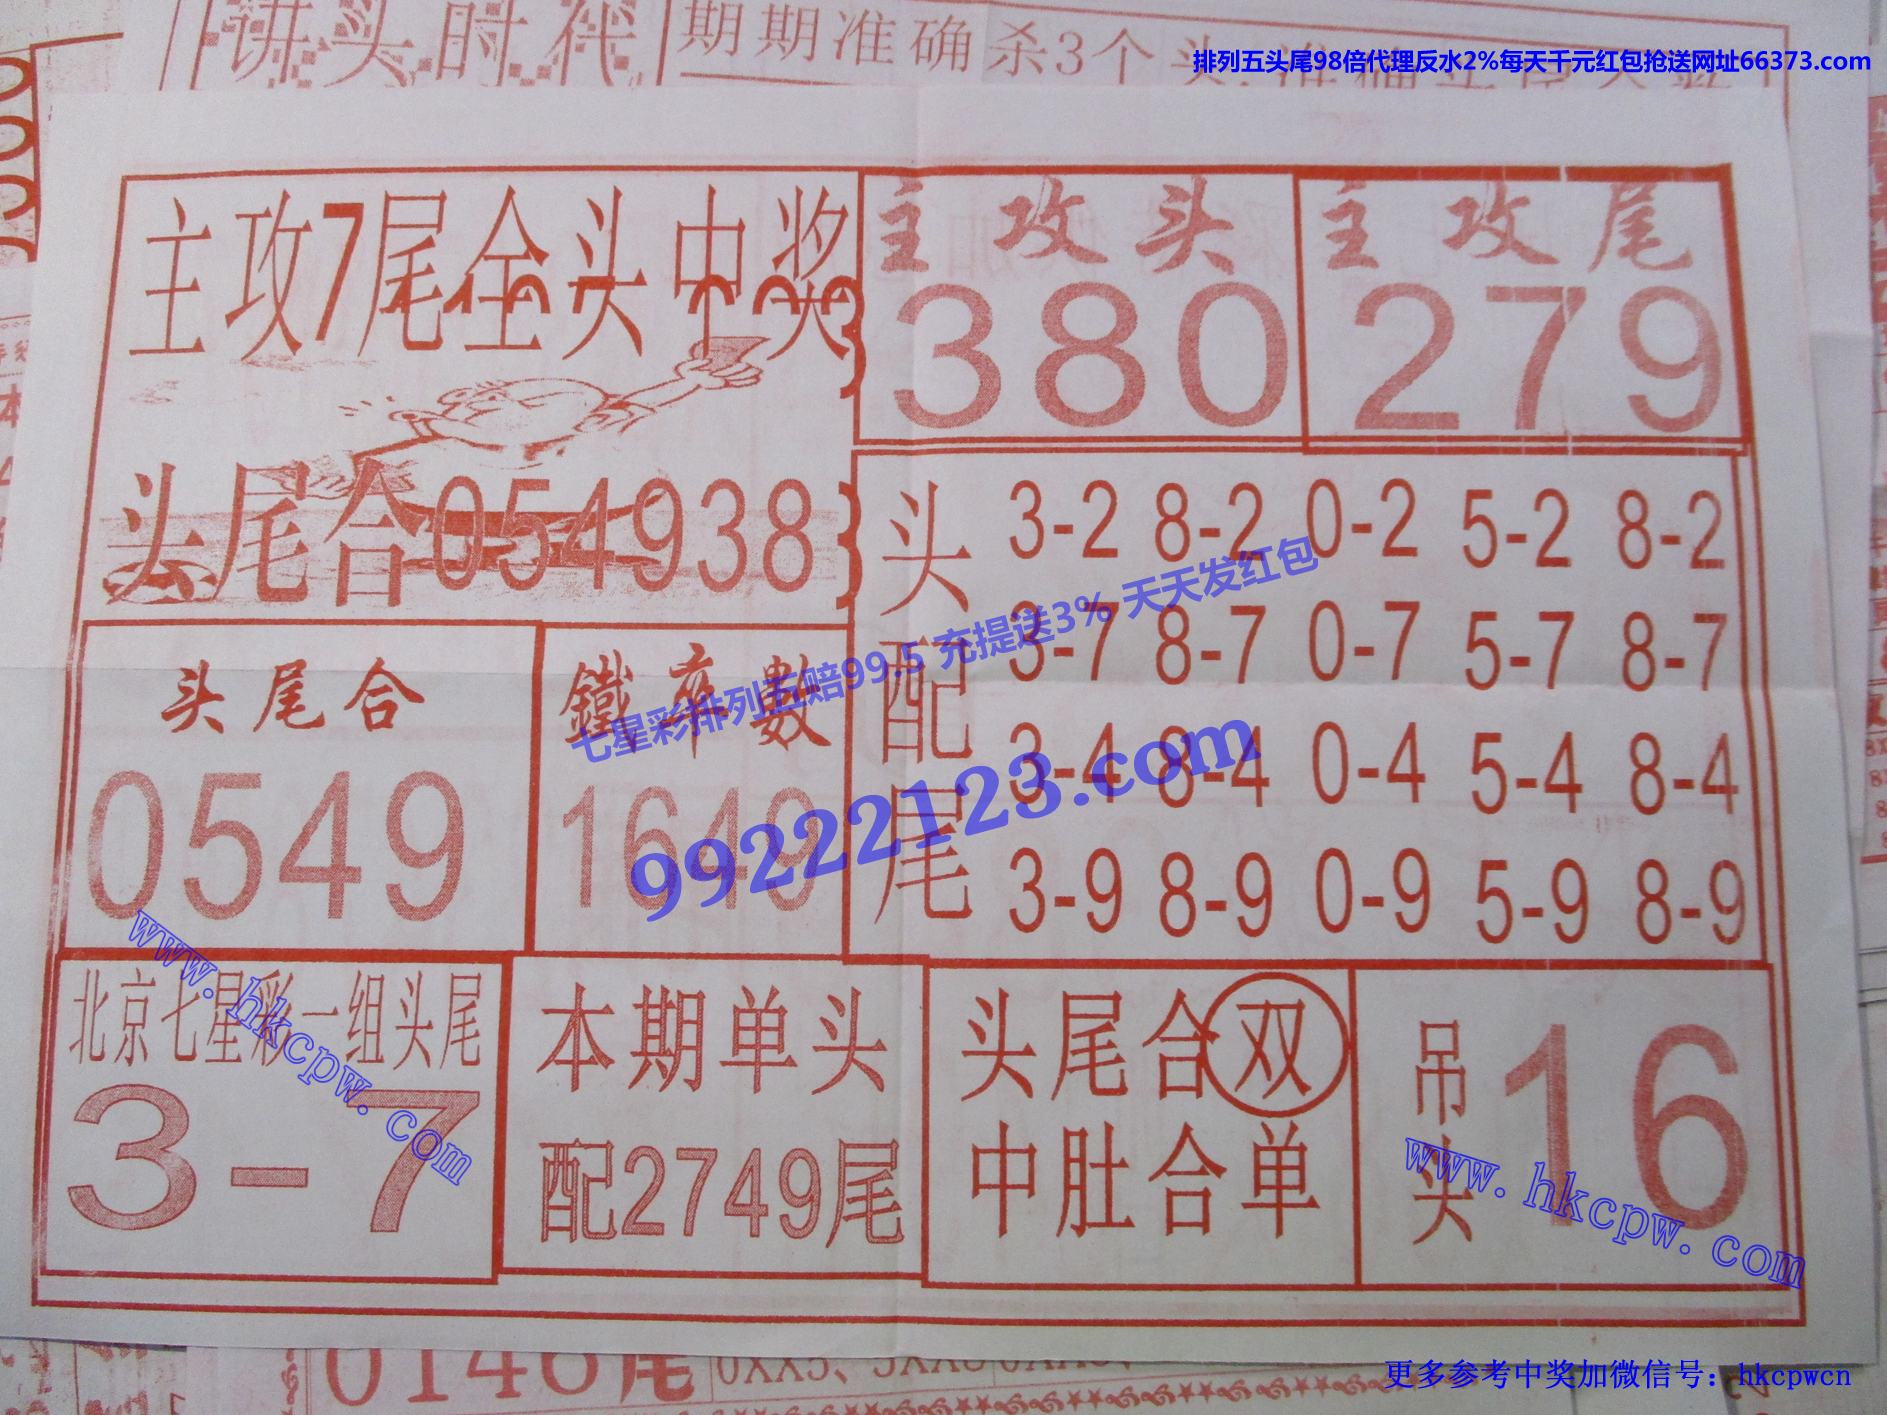 讲头时代
期期准确杀3个头
排列五头尾98倍代理反水2%每天千元红包抢送网址66373.com
主攻7尾全头中奖
主攻头
380
主攻尾
279
头尾合054938
头配尾
3-2 8-2 0-2 5-2 8-2
3-7 8-7 0-7 5-7 8-7
3-4 8-4 0-4 5-4 8-4
3-9 8-9 0-9 5-9 8-9
头尾合
0549
鐵率數
1649
七星彩排列五赔99.5 充提送3% 天天发红包
99222123.com
北京七星彩一组头尾
3-7
www.hkcpw.com
本期单头
配2749尾
头尾合双
中肚合单
吊头16
www.hkcpw.com
0146尾
更多参考中奖加微信号：hkcpwcn